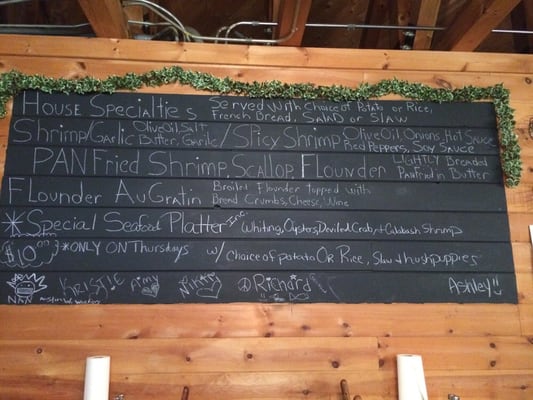 House Specialties Served With Choice of Potato or Rice,
French Bread, SALAD or SLAW
Shrimp/Garlic Butter, Garlic/ Olive Oil, Salt
Spicy Shrimp Olive Oil, Onions, Hot Sauce
Red Peppers, Soy Sauce
PAN Fried Shrimp, Scallop, Flounder LIGHTLY Breaded
Panfried in Butter
Flounder AuGratin Broiled Flounder topped with
Bread Crumbs, Cheese, Wine
*Special Seafood Platter Inc. Whiting, Oysters, Deviled Crab, + Calabash Shrimp
$10.00 *ONLY ON Thursdays w/ Choice of potato OR Rice, Slaw + hushpuppies
NAN KRISTIE Amy Nikki Richard Ashley